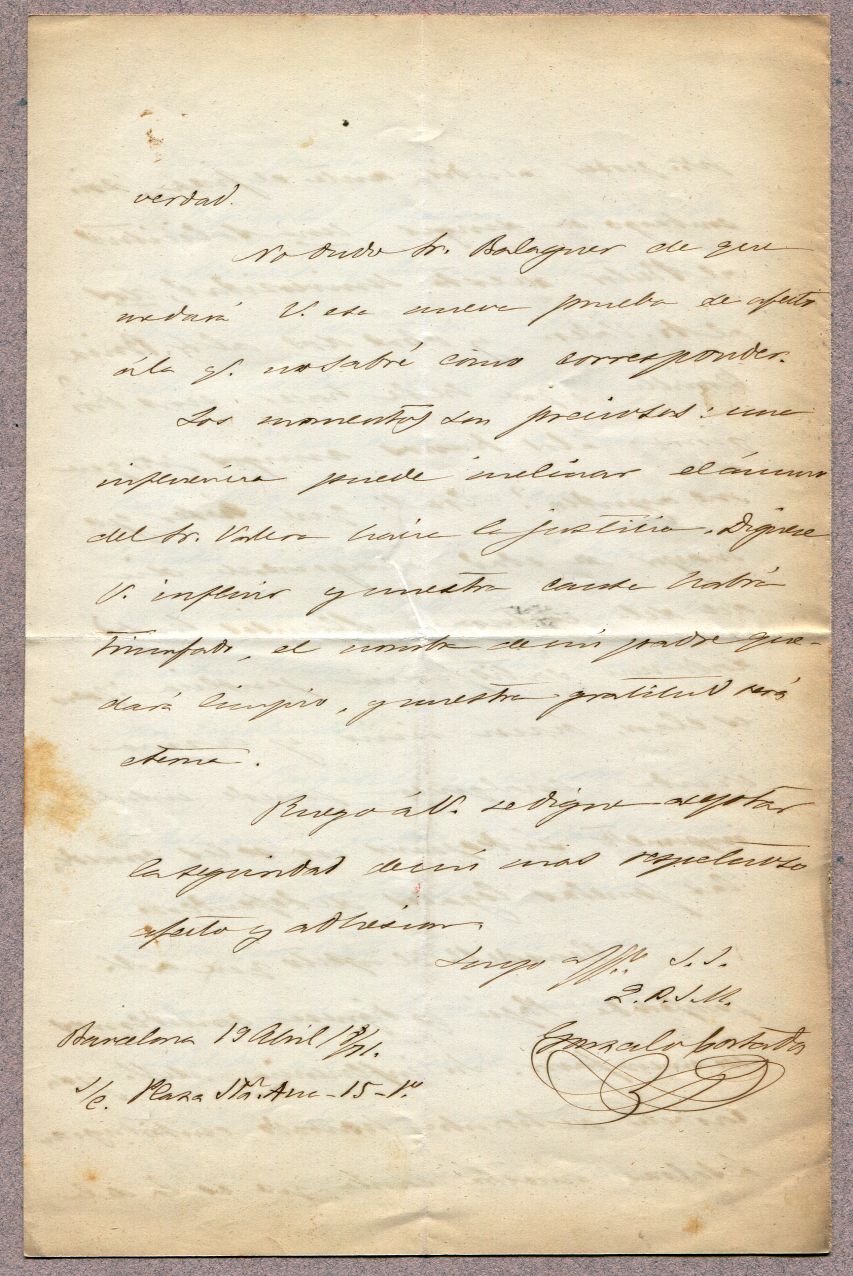 verdad.
No dudo Sr. Balaguer de que
me dará V. esa nueva prueba de afecto
á la q. no sabré como corresponder.
Los momentos son preciosos: una
influencia puede inclinar el ánimo
del Sr. hácia la justicia. Dígnese
V. influir y nuestra causa habrá
triunfado, el nombre de mi padre que-
dará limpio, y nuestra gratitud será
eterna.
Ruego á V. se digne aceptar
la seguridad de mi mas respetuoso
afecto y adhesion
Suyo affmo. S. S.
Q. B. S. M.
Gonzalo
Barcelona 19 Abril 18/71.
S/c. Plaza Sta. Ana - 15 - 1º